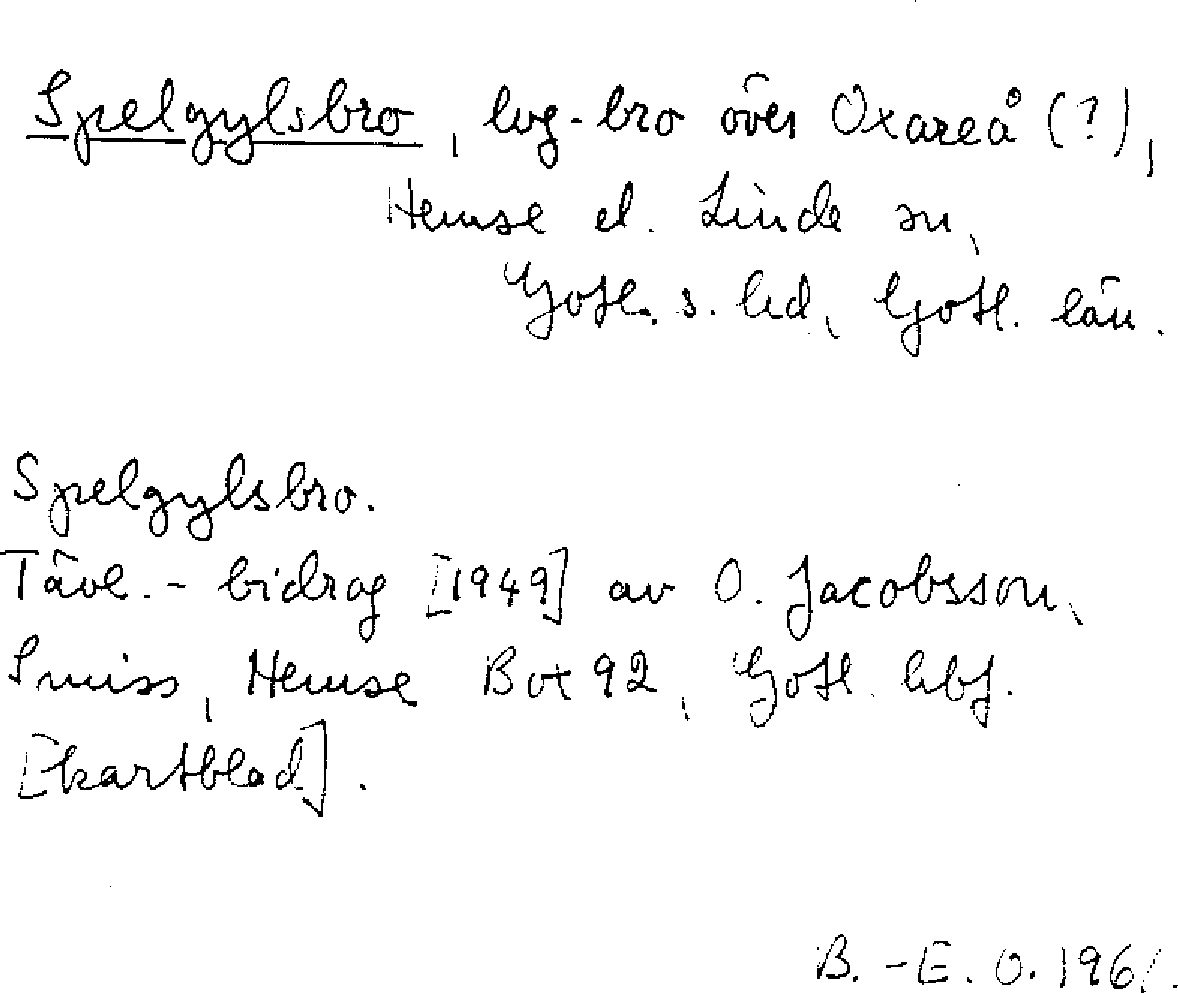 Spelgylsbro, lvg-bro över Oxareå (?),
Hemse el. Linde sn,
Gotl. s. hd, Gotl. län.
Spelgylsbro.
Tävl. - bidrag [1949] av O. Jacobsson,
Smiss, Hemse Box 92, Gotl. hbf.
[kartblad].
B. - E. O. 1961.